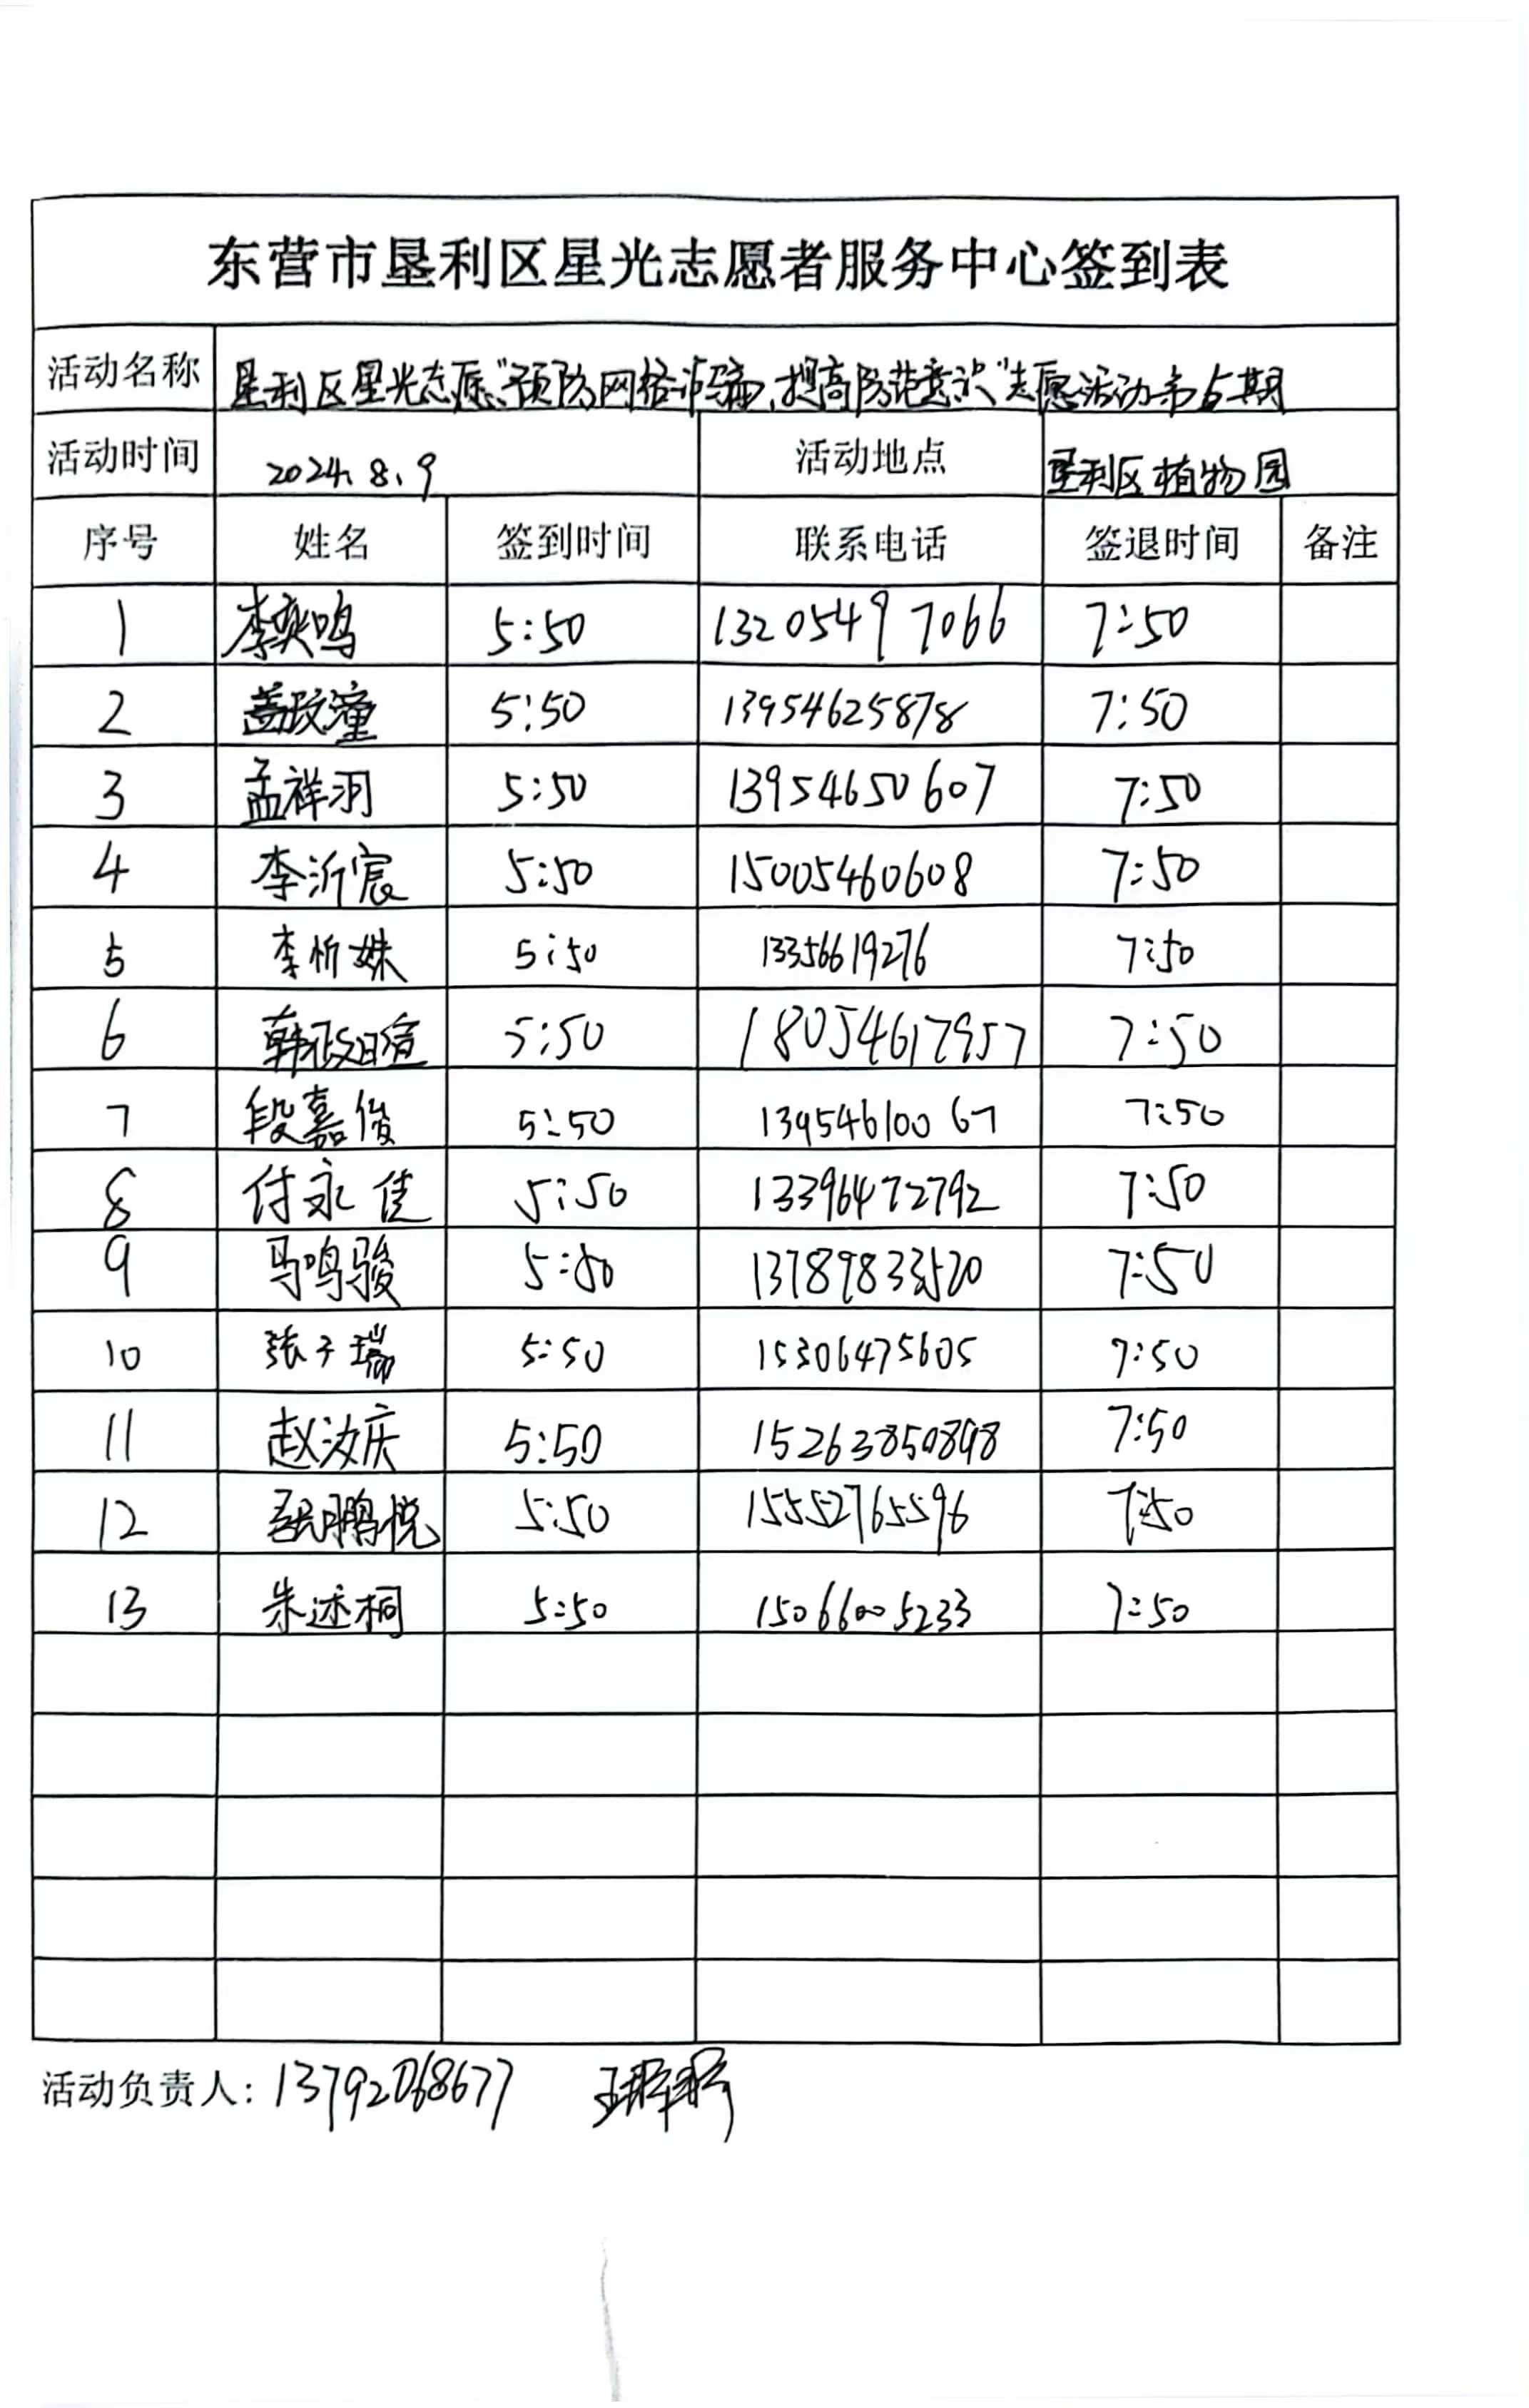 东营市垦利区星光志愿者服务中心签到表
活动名称 垦利区星光志愿“预防网络诈骗,提高防范意识”志愿活动第5期
活动时间 2024.8.9 活动地点 垦利区植物园
序号 姓名 签到时间 联系电话 签退时间 备注
1 李奕鸣 5:50 13205497066 7:50
2 盖政潼 5:50 13954625878 7:50
3 孟祥羽 5:50 13954650607 7:50
4 李沂宸 5:50 15005460608 7:50
5 李忻姝 5:50 13356619276 7:50
6 韩政暄 5:50 18054617957 7:50
7 段嘉俊 5:50 13954610067 7:50
8 付永佳 5:50 13396472792 7:50
9 马鸣骏 5:50 13789833520 7:50
10 张子瑞 5:50 15306475605 7:50
11 赵汝庆 5:50 15263850898 7:50
12 鹏悦 5:50 15552765596 7:50
13 朱述桐 5:50 15066005233 7:50
活动负责人: 13792068677 王